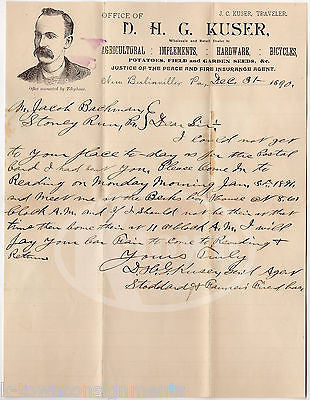 OFFICE OF
J. C. KUSER, TRAVELER.
D. H. G. KUSER,
Wholesale and Retail Dealer in
AGRICULTURAL IMPLEMENTS, HARDWARE, BICYCLES,
POTATOES, FIELD and GARDEN SEEDS, &c.
JUSTICE OF THE PEACE AND FIRE INSURANCE AGENT.
Office connected by Telephone.
New Berlinville Pa, Dec 31st 1890.
Mr Jacob Bachman
Stoney Run, Pa Dear Sir
I could not get
to your place to day as for the Postal
Card I had sent you, Please Come In the
Reading on Monday Morning Jan 5th
and Meet me at the Berks House at
Clock A.M. and If I should not be their at that
time then come their at 11 oClock A.M. I will
pay your Car Fair to Come to Reading &
Return
Yours Truly
D. H. G. Kuser, Agent
Stoddard